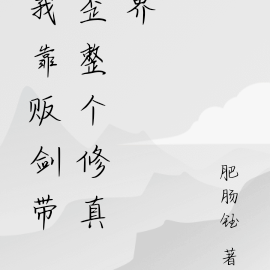 我靠贩剑带
歪整个修真
界
肥肠钰 著